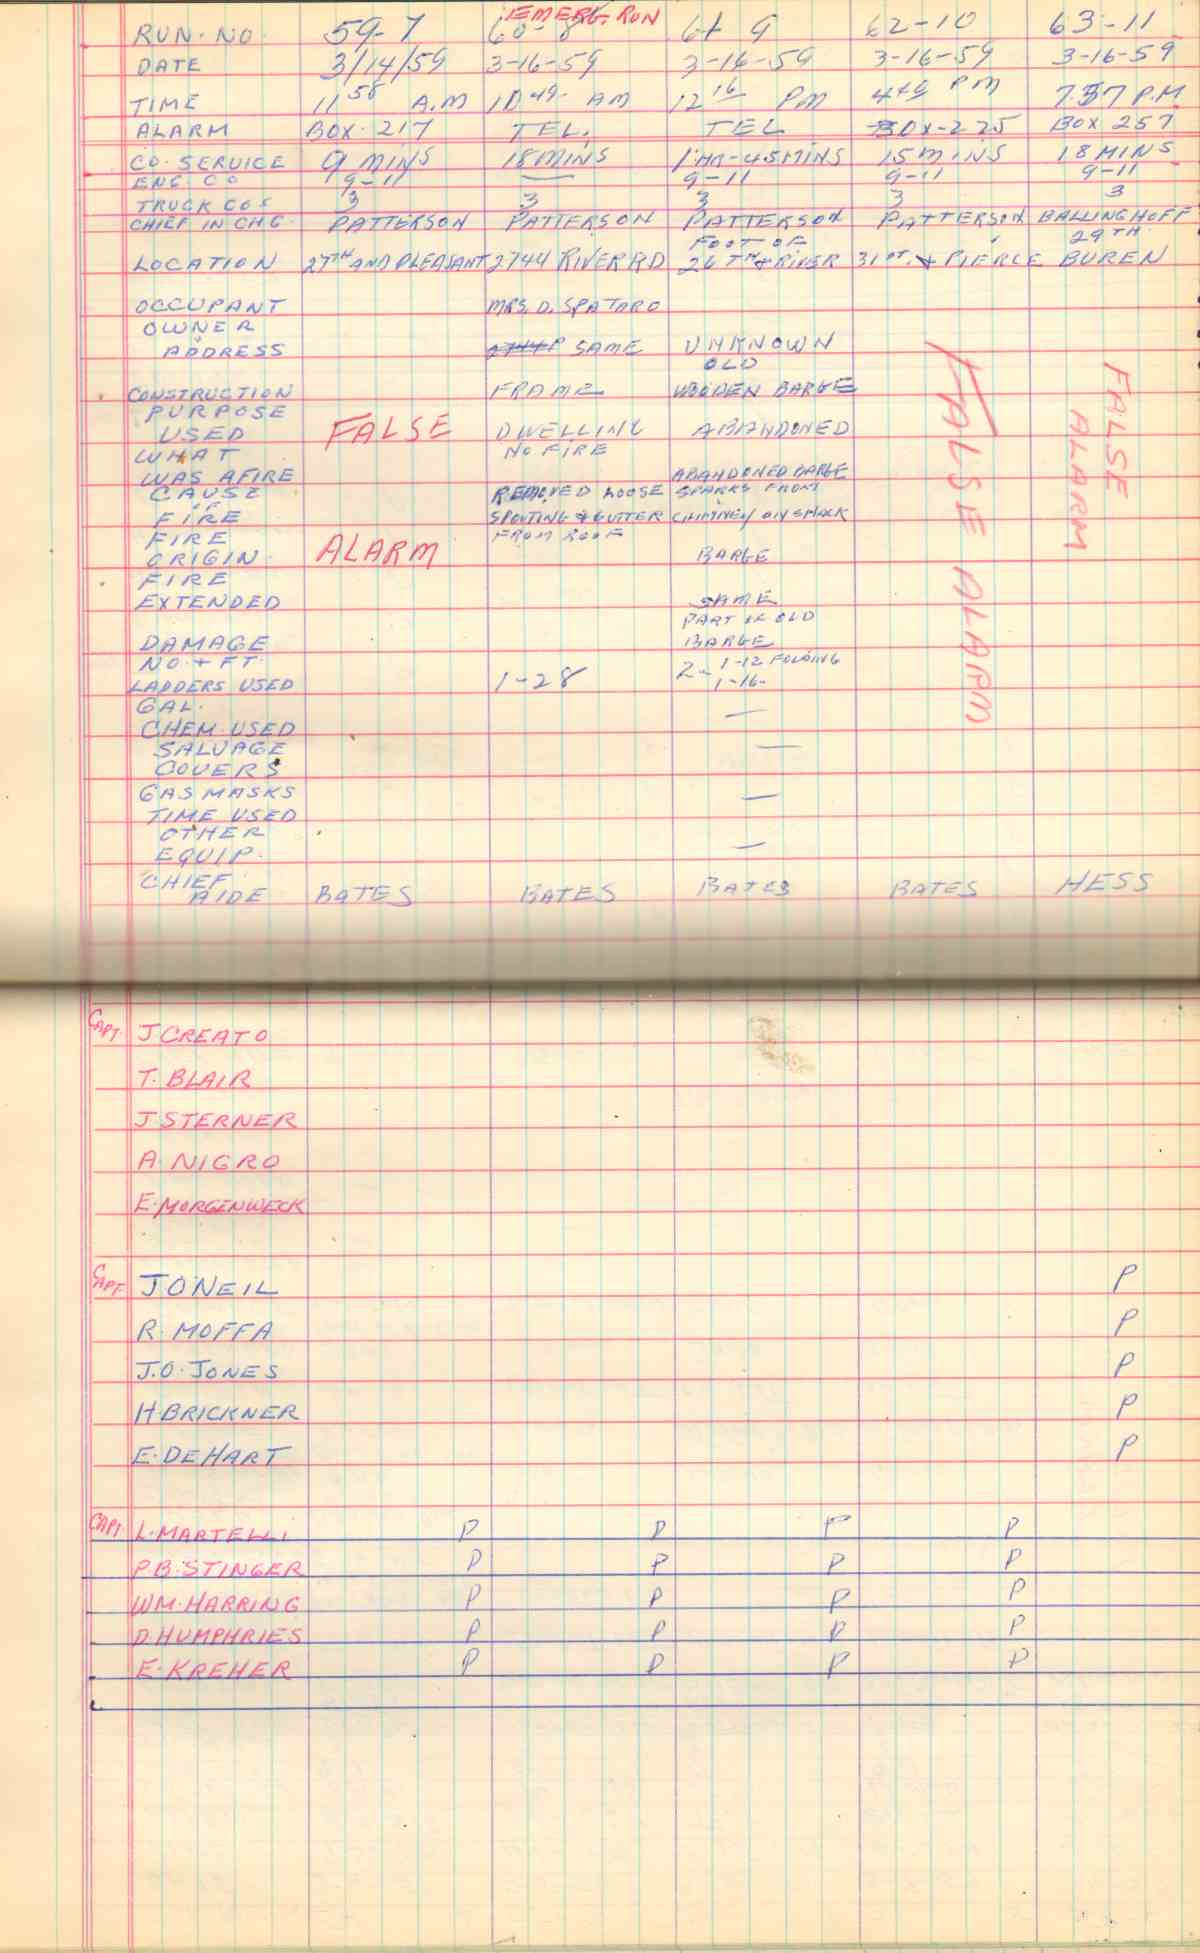 EMERG. RUN
RUN. NO. 59-7 60-8 61 9 62-10 63-11
DATE 3/14/59 3-16-59 3-16-59 3-16-59 3-16-59
TIME 11 58 A.M 10 49 AM 12 16 PM PM 7.57 P.M
ALARM BOX. 217 TEL. TEL BOX-225 BOX 257
CO. SERVICE 9 MINS 18 MINS 1 HR-45 MINS 15 MINS 18 MINS
ENG. CO 9-11 — 9-11 9-11 9-11
TRUCK COS 3 3 3 3 3
CHIEF IN CHG. PATTERSON PATTERSON PATTERSON PATTERSON BALLINGHOFF
FOOT OF 29TH
LOCATION 27TH AND PLEASANT 2744 RIVER RD 26TH & RIVER 31ST. & PIERCE BUREN
OCCUPANT MRS. D. SPATARO
OWNER
ADDRESS SAME UNKNOWN
OLD
CONSTRUCTION FRAME WOODEN BARGE
PURPOSE
USED FALSE DWELLING ABANDONED FALSE ALARM FALSE ALARM
WHAT NO FIRE
WAS AFIRE ABANDONED BARGE
CAUSE REMOVED LOOSE SPARKS FROM
OF
FIRE SPOUTING & GUTTER CHIMNEY ON SHACK
FIRE FROM ROOF
ORIGIN ALARM BARGE
FIRE
EXTENDED SAME
PART OF OLD
DAMAGE BARGE
NO. + FT. 2- 1-12 FOLDING
LADDERS USED 1-28 1-16-
GAL. —
CHEM. USED
SALVAGE —
COVERS
GAS MASKS —
TIME USED
OTHER
EQUIP. —
CHIEF
AIDE BATES BATES BATES BATES HESS
CAPT. J CREATO
T. BLAIR
J STERNER
A. NIGRO
E. MORGENWECK
CAPT. J O'NEIL P
R. MOFFA P
J.O. JONES P
H BRICKNER P
E. DEHART P
CAPT. L. MARTELLI P P P P
P.B. STINGER P P P P
WM. HARRING P P P P
D. HUMPHRIES P P P P
E. KREHER P P P P